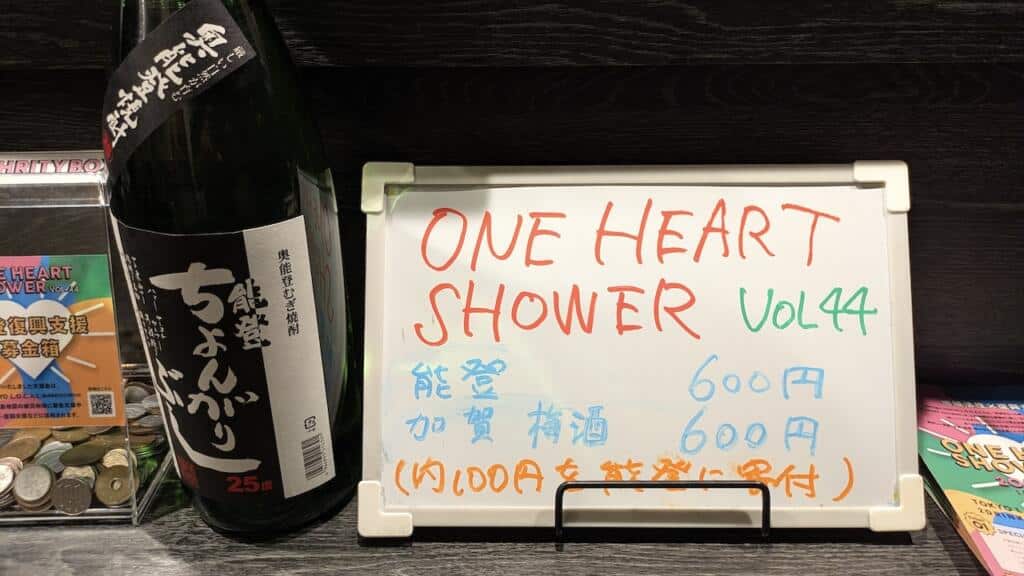 HRITYBO
NE HEART
OWER
復興支援
募金箱
奥能登
能登
ちょんがりぶし
奥能登むぎ焼酎
25度
ONE HEART
SHOWER VOL44
能登 600円
加賀 梅酒 600円
(内100円を能登に寄付)
ONE H
SHOWER